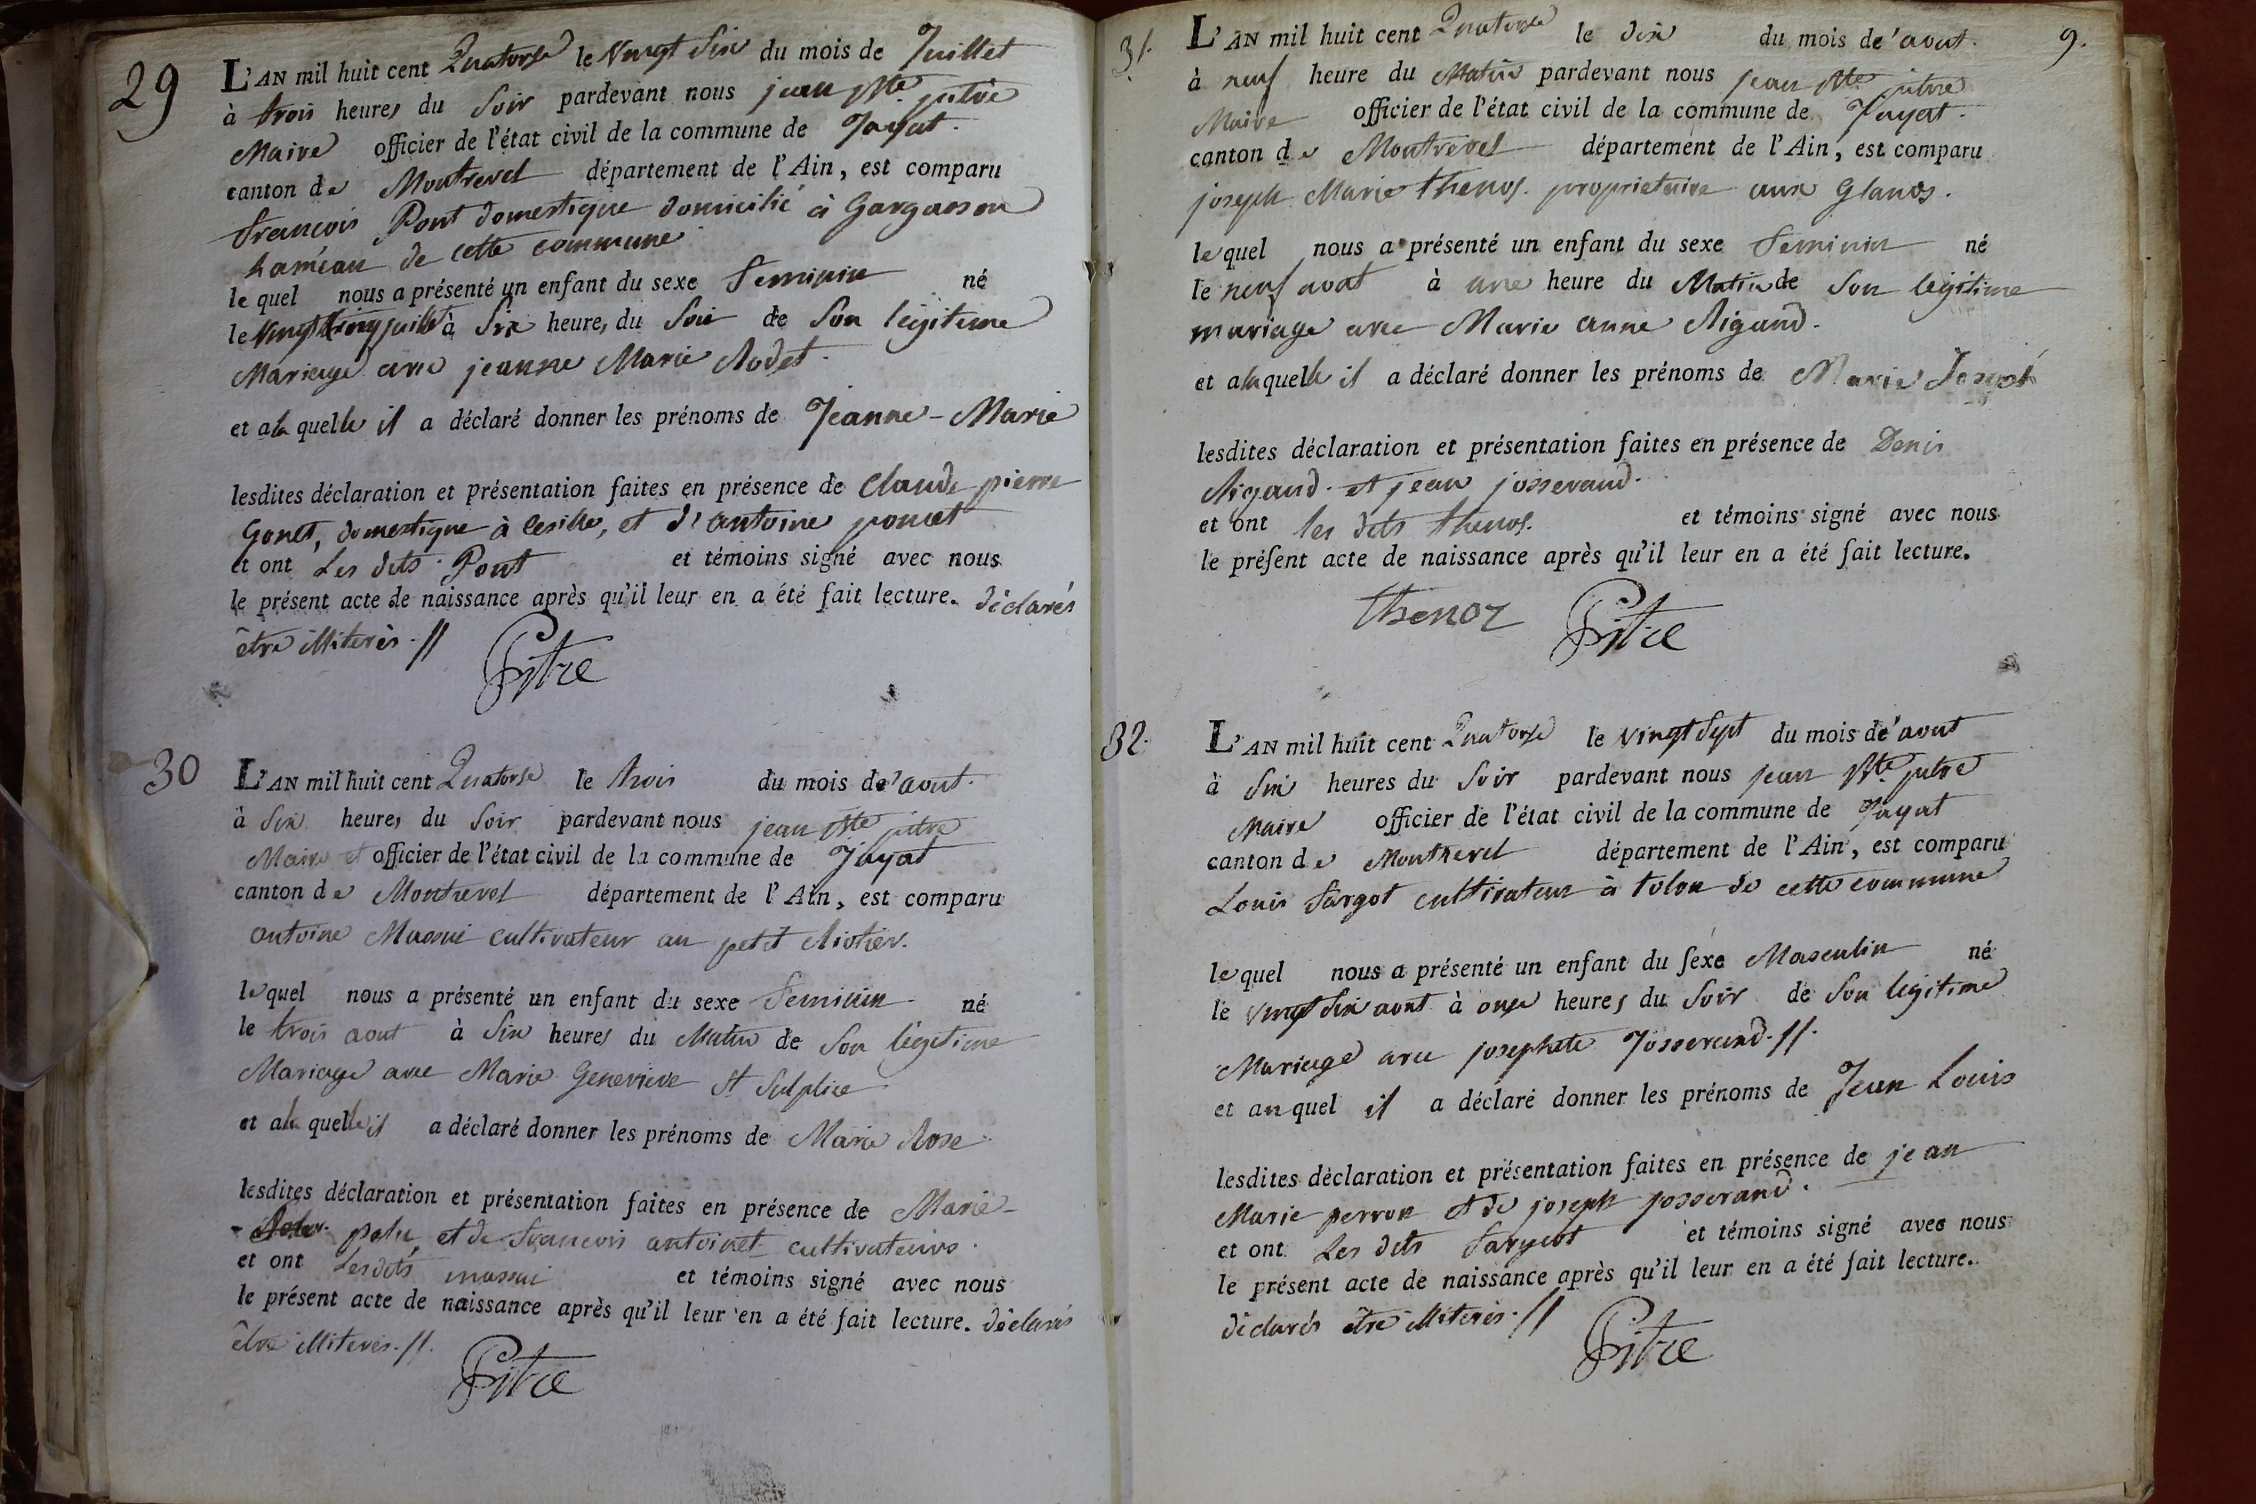 29
L'AN mil huit cent Quatorse le Vingt Six du mois de Juillet
à trois heures du Soir pardevant nous jean Bte pitre
Maire officier de l'état civil de la commune de Jayat.
canton de Montrevel département de l'Ain, est comparu
francois Pont domestique domicilié à Gargasson
hameau de cette commune
le quel nous a présenté un enfant du sexe Feminin né
le Vingt Cinq juillet à Six heures du Soir de Son légitime
Mariage avec jeanne Marie Rodet.
et a la quelle il a déclaré donner les prénoms de Jeanne-Marie
lesdites déclaration et présentation faites en présence de Claude pierre
Gonet, domestique à Cesille, et d'antoine poncet
et ont Les dits Pont et témoins signé avec nous
le présent acte de naissance après qu'il leur en a été fait lecture. déclarés
être illiterés.//
Pitre
30
L'AN mil huit cent Quatorse le trois du mois de aout.
à Six heures du Soir pardevant nous jean Bte pitre
Maire et officier de l'état civil de la commune de Jayat
canton de Montrevel département de l'Ain, est comparu
antoine Massui cultivateur au petit Riotier.
lequel nous a présenté un enfant du sexe Feminin né
le trois aout à Six heures du Matin de Son légitime
Mariage avec Marie Genevieve St Sulpice
et a la quelle il a déclaré donner les prénoms de Marie Rose
lesdites déclaration et présentation faites en présence de Marie-
polu et de francois antoinet cultivateurs.
et ont Lesdits massui et témoins signé avec nous
le présent acte de naissance après qu'il leur en a été fait lecture. déclarés
être illiterés.//.
Pitre
9.
31.
L'AN mil huit cent Quatorse le dix du mois de'aout.
à neuf heure du Matin pardevant nous jean Bte pitre
Maire officier de l'état civil de la commune de Jayat.
canton de Montrevel département de l'Ain, est comparu
joseph Marie thenos. proprietaire aux Glanos.
lequel nous a présenté un enfant du sexe Feminin né
le neuf aout à une heure du Matin de Son légitime
mariage avec Marie anne Rigaud.
et a la quelle il a déclaré donner les prénoms de Marie Joseph
lesdites déclaration et présentation faites en présence de Denis
Rigaud. et jean josserand.
et ont les dits thenos. et témoins signé avec nous
le présent acte de naissance après qu'il leur en a été fait lecture.
thenoz Pitre
32.
L'AN mil huit cent Quatorse le vingt Sept du mois de'aout
à Six heures du Soir pardevant nous jean Bte pitre
Maire officier de l'état civil de la commune de Jayat
canton de Montrevel département de l'Ain, est comparu
Louis Fargot cultivateur à tolon de cette commune
lequel nous a présenté un enfant du sexe Masculin né
le vingt Six aout à onze heures du Soir de Son légitime
Mariage avec josephete Josserand.//.
et au quel il a déclaré donner les prénoms de Jean Louis
lesdites déclaration et présentation faites en présence de jean
Marie perron et de joseph josserand.
et ont Les dits Fargeot et témoins signé avec nous
le présent acte de naissance après qu'il leur en a été fait lecture.
déclarés être illiterés.//
Pitre